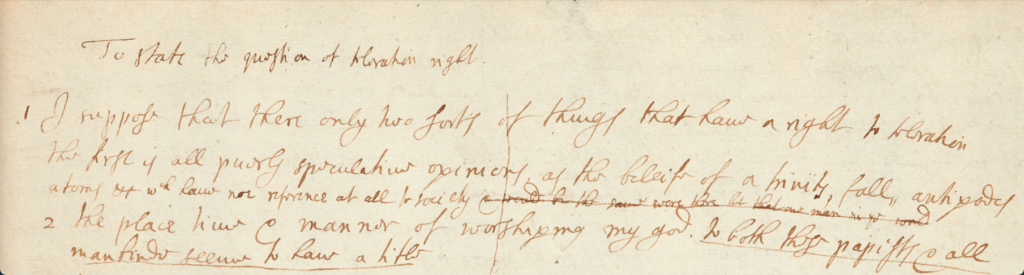 To state the question of toleration right.
1 I suppose that there only two sorts of things that have a right to toleration
the first is all purely speculative opinions, as the beliefe of a trinity, fall, antipodes
atoms &c wch have noe reference at all to society & would be the same were there but that one man in ye world
2 the place time & manner of worshiping my god. to both these papists & all
mankinde seeme to have a title